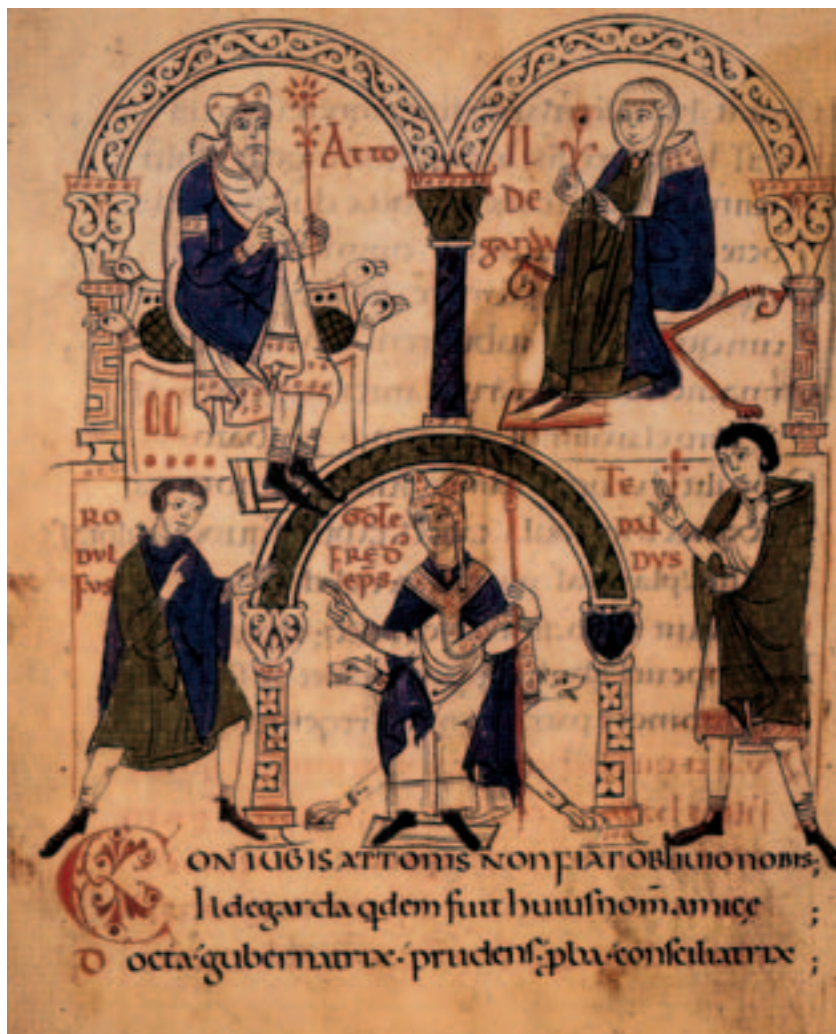 Atto
Il
de
garda
RO
DUL
FUS
GOTE
FRED
EPS
Te
DAL
DUS
CONIUGIS ATTONIS NON FIAT OBLIUIO NOBIS;
Ildegarda qdem fuit huiuſ nom̄ amicę ;
Docta·gubernatrix·prudenſ·pba·conſciliatrix ;